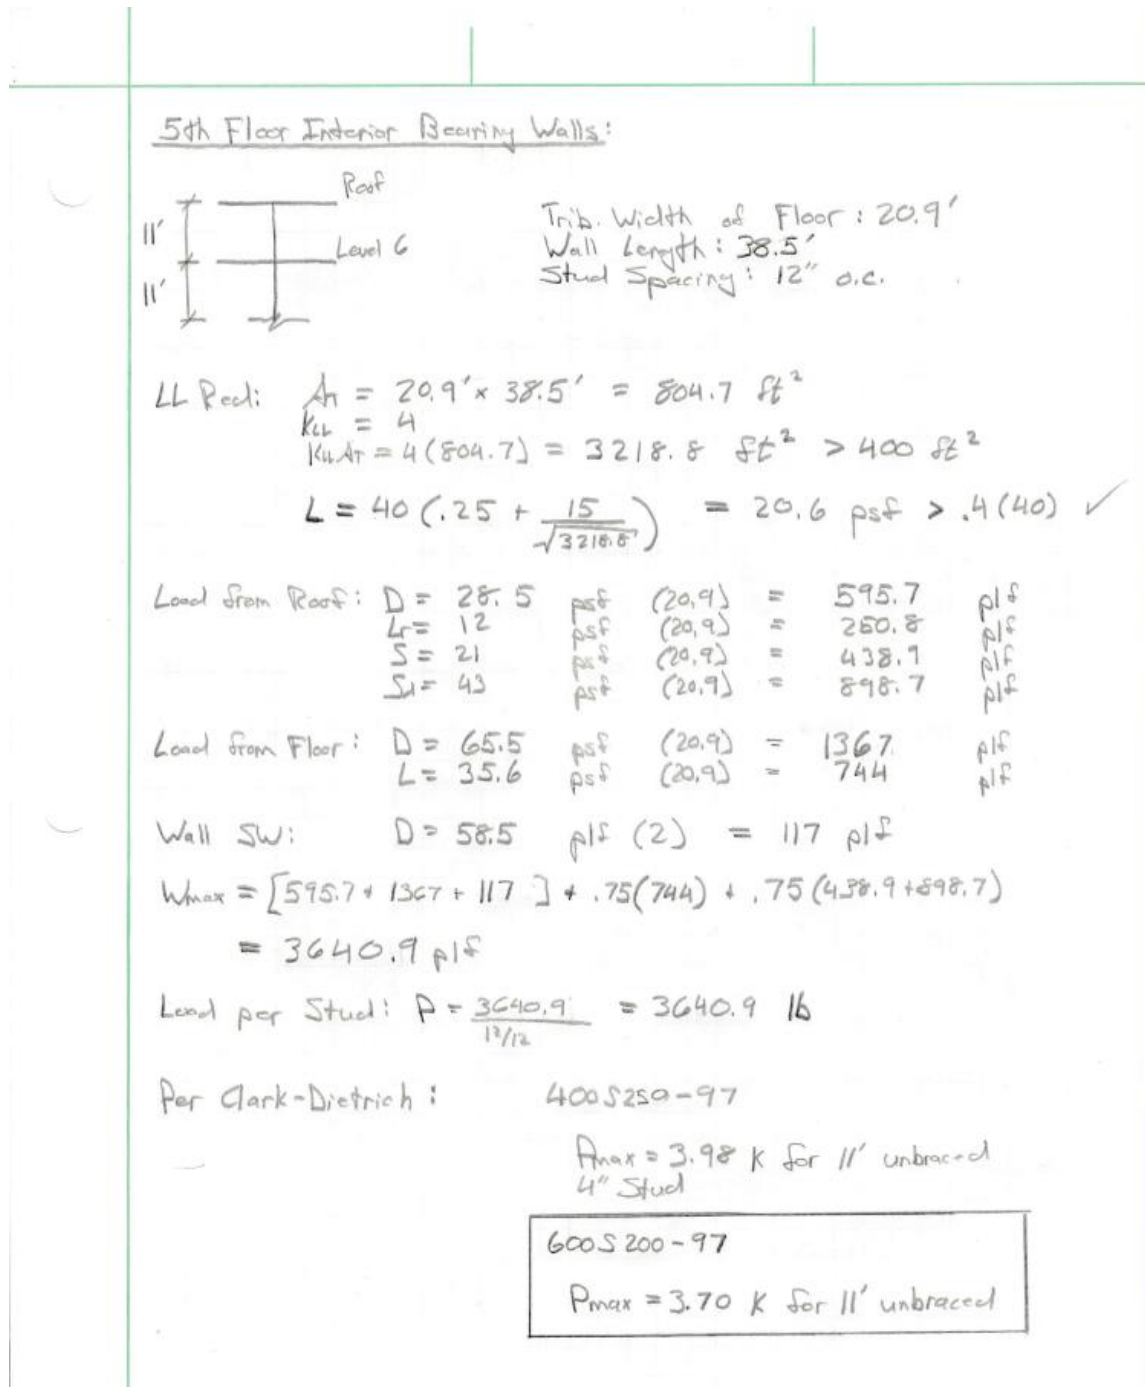 5th Floor Interior Bearing Walls:
Roof
11'
Level 6
11'
Trib. Width of Floor: 20.9'
Wall Length: 38.5'
Stud Spacing: 12" o.c.
LL Red: AT = 20.9' x 38.5' = 804.7 ft²
KLL = 4
KLLAT = 4(804.7) = 3218.8 ft² > 400 ft²
L = 40 (.25 + 15/√3218.8) = 20.6 psf > .4(40) ✓
Load from Roof: D = 28.5 psf (20.9) = 595.7 plf
Lr = 12 psf (20.9) = 250.8 plf
S = 21 psf (20.9) = 438.9 plf
Sd = 43 psf (20.9) = 898.7 plf
Load from Floor: D = 65.5 psf (20.9) = 1367 plf
L = 35.6 psf (20.9) = 744 plf
Wall SW: D = 58.5 plf (2) = 117 plf
Wmax = [595.7 + 1367 + 117] + .75(744) + .75(438.9+898.7)
= 3640.9 plf
Load per Stud: P = 3640.9 / 12/12 = 3640.9 lb
Per Clark-Dietrich: 400S250-97
Pmax = 3.98 K for 11' unbraced
4" Stud
600S200-97
Pmax = 3.70 K for 11' unbraced